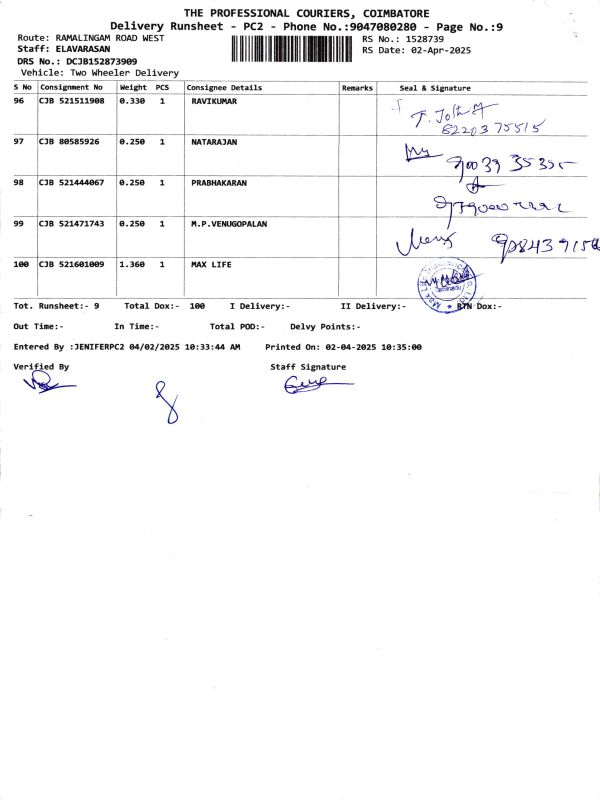 THE PROFESSIONAL COURIERS, COIMBATORE
Delivery Runsheet - PC2 - Phone No.:9047080280 - Page No.:9
Route: RAMALINGAM ROAD WEST RS No.: 1528739
Staff: ELAVARASAN RS Date: 02-Apr-2025
DRS No.: DCJB152873909
Vehicle: Two Wheeler Delivery
S No Consignment No Weight PCS Consignee Details Remarks Seal & Signature
96 CJB 521511908 0.330 1 RAVIKUMAR
8220375515
97 CJB 80585926 0.250 1 NATARAJAN
98 CJB 521444067 0.250 1 PRABHAKARAN
99 CJB 521471743 0.250 1 M.P.VENUGOPALAN
100 CJB 521601009 1.360 1 MAX LIFE
Tot. Runsheet:- 9 Total Dox:- 100 I Delivery:- II Delivery:- RTN Dox:-
Out Time:- In Time:- Total POD:- Delvy Points:-
Entered By :JENIFERPC2 04/02/2025 10:33:44 AM Printed On: 02-04-2025 10:35:00
Verified By Staff Signature